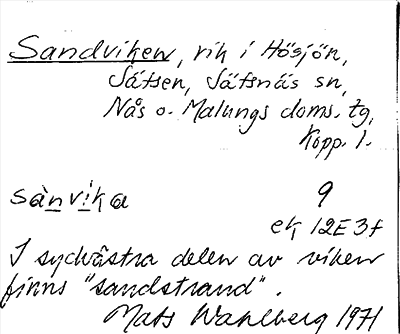 Sandviken, vik i Hösjön,
Sätsen, Sätsnäs sn,
Nås o. Malungs doms. tg,
Kopp. l.
sànvika 9
ek 12E3f
I sydvästra delen av viken
finns "sandstrand".
Mats Wahlberg 1971